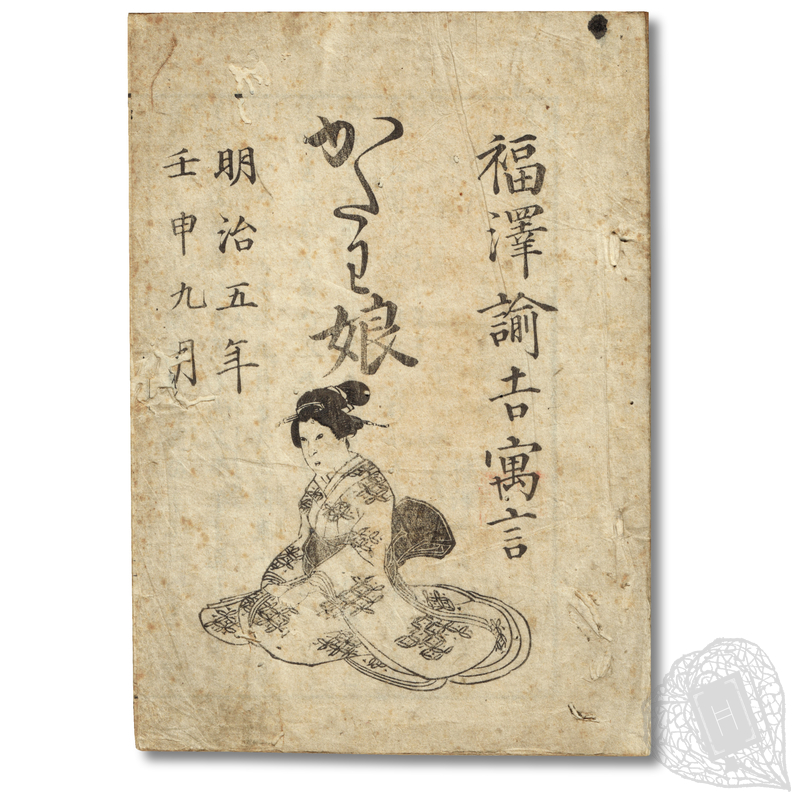 福澤諭吉寓言
かたわ娘
明治五年
壬申九月
H